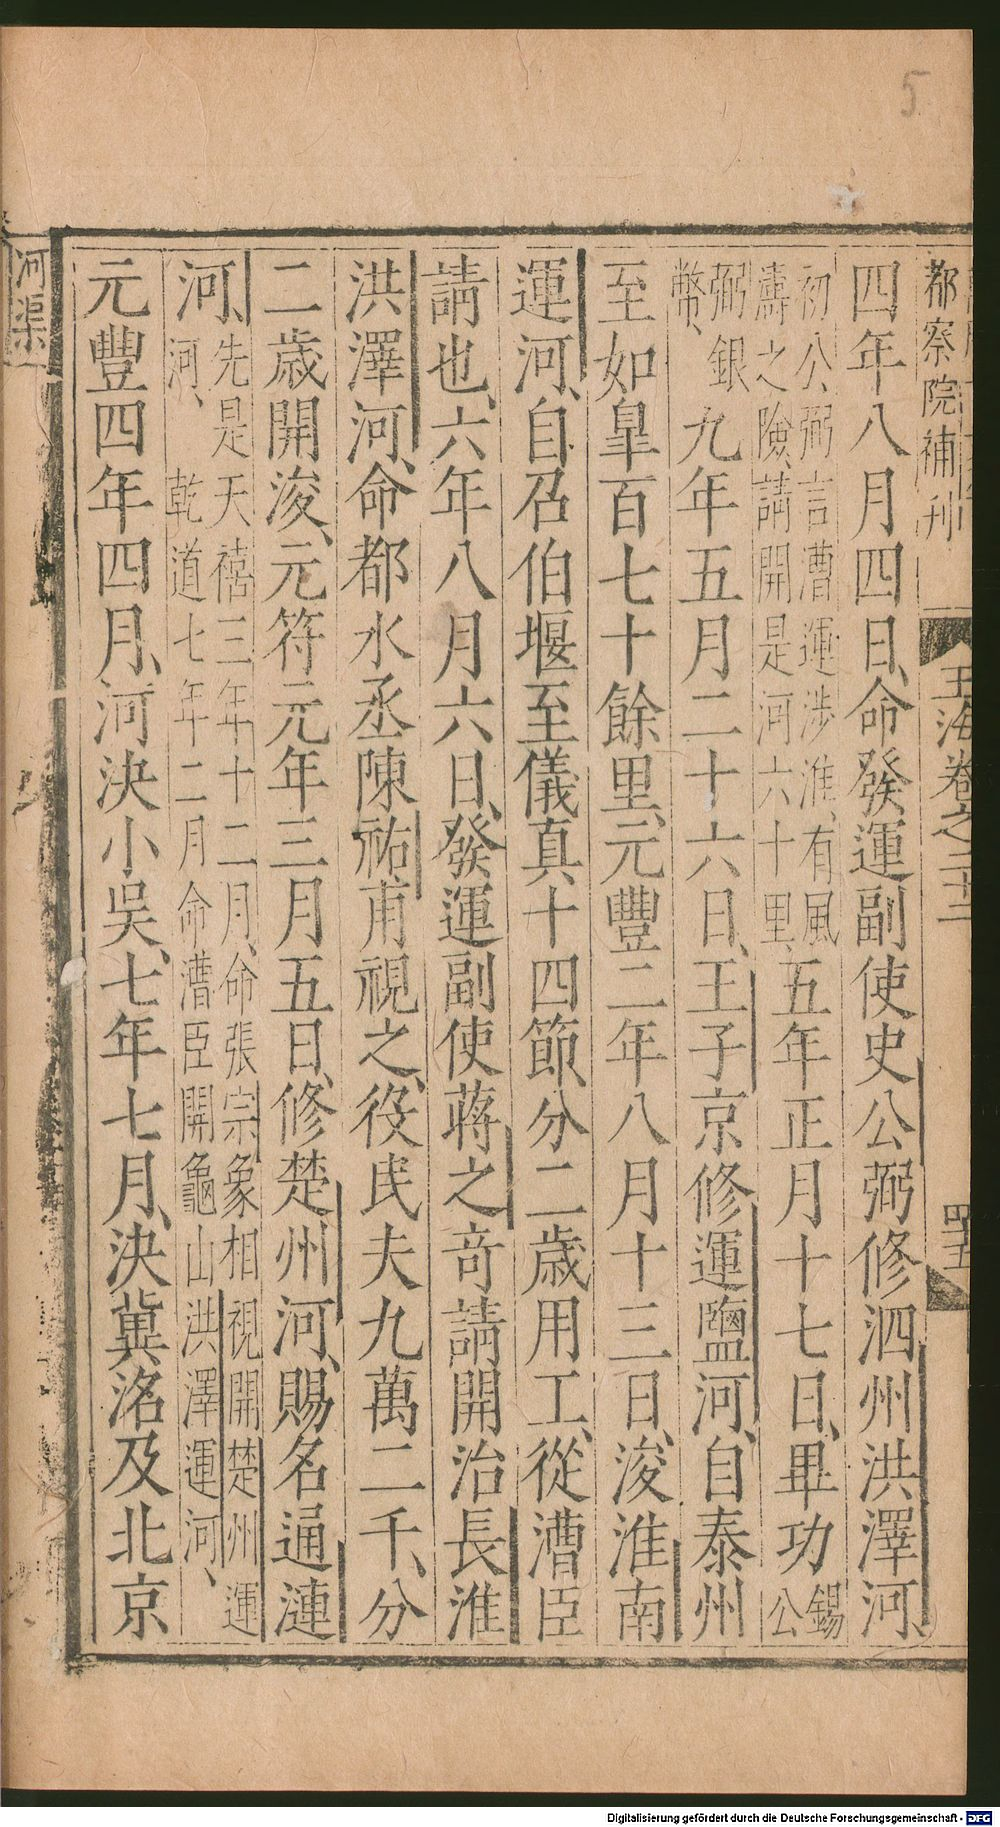 5
都察院補刊
玉海卷之二十二
四五
四年八月四日、命發運副使史公弼修泗州洪澤河、
初公弼言漕運涉淮、有風
濤之險、請開是河六十里、
五年正月十七日、畢功
錫
公
弼銀
幣、
九年五月二十六日、王子京修運鹽河、自泰州
至如皐百七十餘里、元豐二年八月十三日、浚淮南
運河、自召伯堰至儀真十四節、分二歲用工、從漕臣
請也、六年八月六日、發運副使蔣之竒請開治長淮
洪澤河、命都水丞陳祐甫視之、役民夫九萬二千、分
二歲開浚、元符元年三月五日、修楚州河、賜名通漣
河、
先是天禧三年十二月、命張宗象相視開楚州運
河、 乾道七年二月命漕臣開龜山洪澤運河、
元豐四年四月、河決小吳、七年七月、決冀洺及北京
河渠
Digitalisierung gefördert durch die Deutsche Forschungsgemeinschaft - DFG